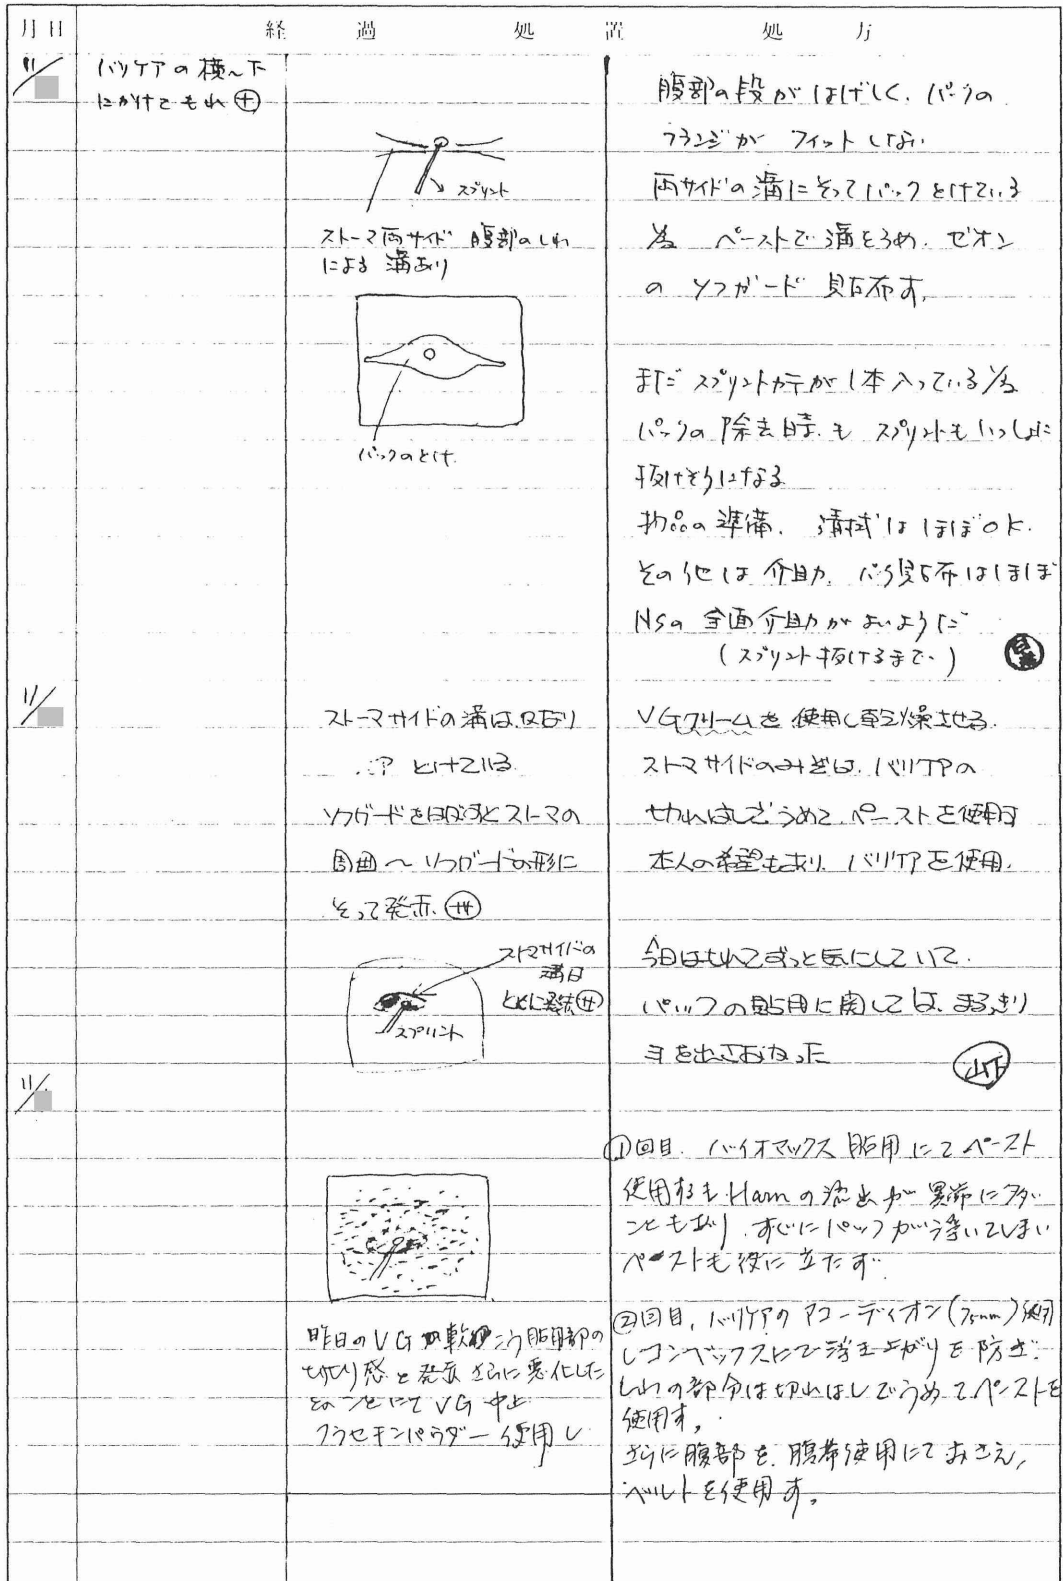 月日 経過 処置 処方
11/
バリケアの横〜下
にかけてもれ(+)
スプリント
ストーマ両サイド 腹部のしわ
による 溝あり
パックのとけ
腹部の段がはげしく、パックの
フランジが フィットしない
両サイドの溝にそってパックとけている
為 ペーストで溝をうめ、ゼオン
の ソフガード 貼布す。
まだ スプリントカテが1本入っている為
パックの除去時も スプリントもいっしょに
抜けそうになる
物品の準備、清拭は ほぼOK.
その他は 介助、パック貼布はほぼ
NSの 全面介助がよいようだ
(スプリント抜けるまで)
11/
ストーマサイドの溝は、
とけている
ソフガードをはがすとストーマの
周囲〜ソフガードの形に
そって発赤、(++)
ストマサイドの
溝は
ともに発赤(++)
スプリント
VGクリームを使用し乾燥させる.
ストマサイドのみぞは、バリケアの
切れはしでうめて、ペーストを使用す
本人の希望もあり、バリケアを使用.
今日はもれてずっと気にしていて.
パックの貼用に関しては、まるきり
手を出さなかった
山下
11/
①回目. バイオマックス 貼用にて ペースト
使用するも Harnの流出が 異常に多い
こともあり、すぐにパックが浮いてしまい
ペーストも役に立たず
昨日のVG軟こう貼用部の
ぴりぴり感と発赤 さらに悪化した
とのことにて VG中止
フラセチンパウダー使用し
②回目, バリケアの アコーディオン(75mm)使用
しコンベックスにて浮き上がりを防ぎ.
しわの部分は切れはしでうめてペーストを
使用す。
さらに腹部を、腹帯使用にておさえ,
ベルトを使用す。